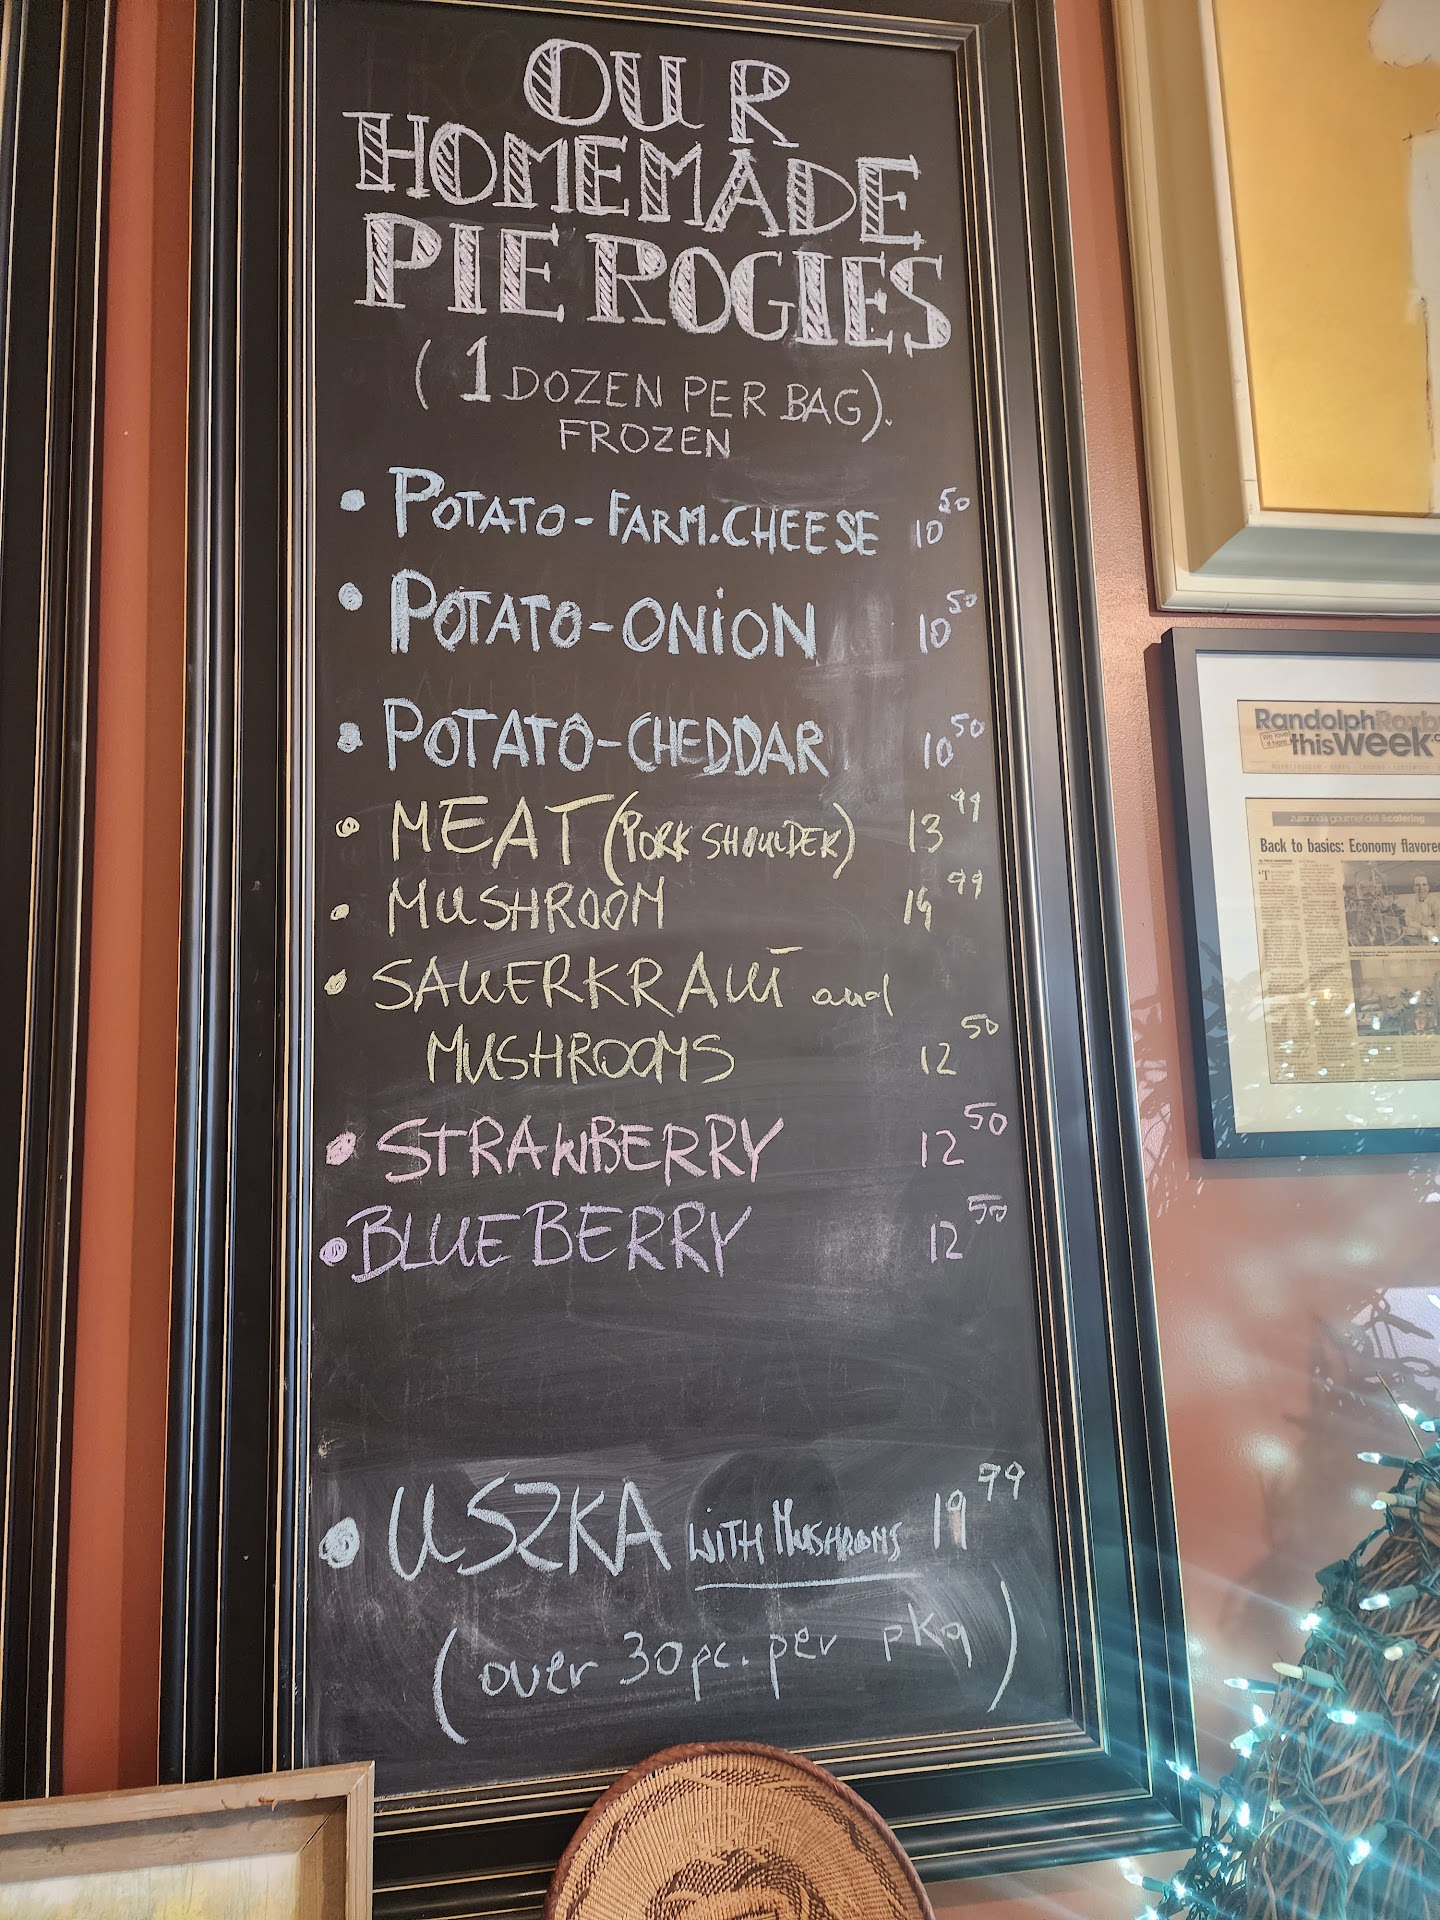 OUR
HOMEMADE
PIEROGIES
(1 DOZEN PER BAG).
FROZEN
• POTATO-FARM.CHEESE 10 50
• POTATO-ONION 10 50
• POTATO-CHEDDAR 10 50
• MEAT (PORK SHOULDER) 13 99
• MUSHROOM 14 99
• SAUERKRAUT and
MUSHROOMS 12 50
• STRAWBERRY 12 50
• BLUEBERRY 12 50
• USZKA WITH MUSHROOMS 19 99
(over 30pc. per pkg)
Randolph
We love it here
thisWeek
zuzanna's gourmet deli & catering
Back to basics: Economy flavored